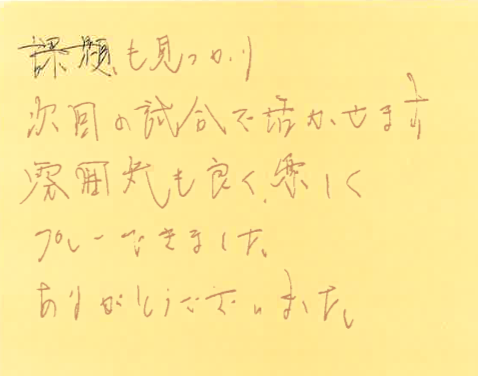 課題も見つかり
次回の試合で活かせます
雰囲気も良く、楽しく
プレーできました。
ありがとうございました。